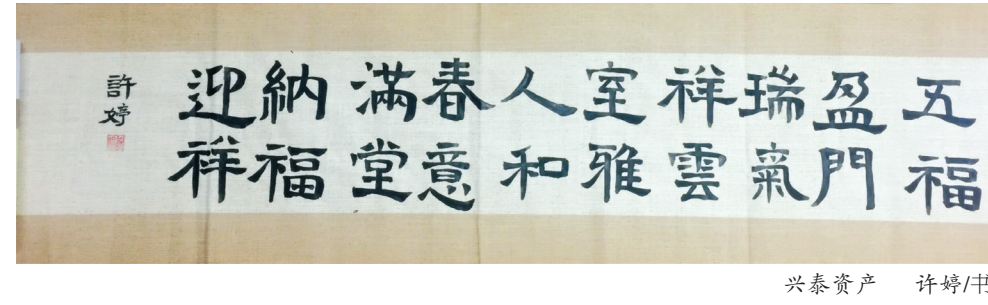 五福
盈門
瑞氣
祥雲
室雅
人和
春意
滿堂
納福
迎祥
許婷
兴泰资产 许婷/书